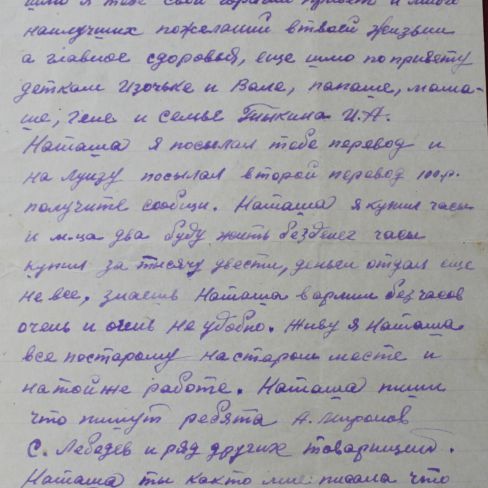 шлю я тебе свой горячий привет и много
наилучших пожеланий в твоей жизни
а главное здоровья, еще шлю по привету
деткам Изочьке и Вале, папаше, мама-
ше, Гене и семье Тыкина И.А.
Наташа я посылал тебе перевод и
на Луизу посылал второй перевод 100р.
получите сообщи. Наташа я купил часы
и м-ца два буду жить без денег часы
купил за тысячу двести, деньги отдал еще
не все, знаешь Наташа в армии без часов
очень и очень не удобно. Живу я Наташа
все постарому на старом месте и
на той же работе. Наташа пиши
что пишут ребята А. Миронов
С. Лебедев и ряд других товарищей.
Наташа ты как то мне писала что